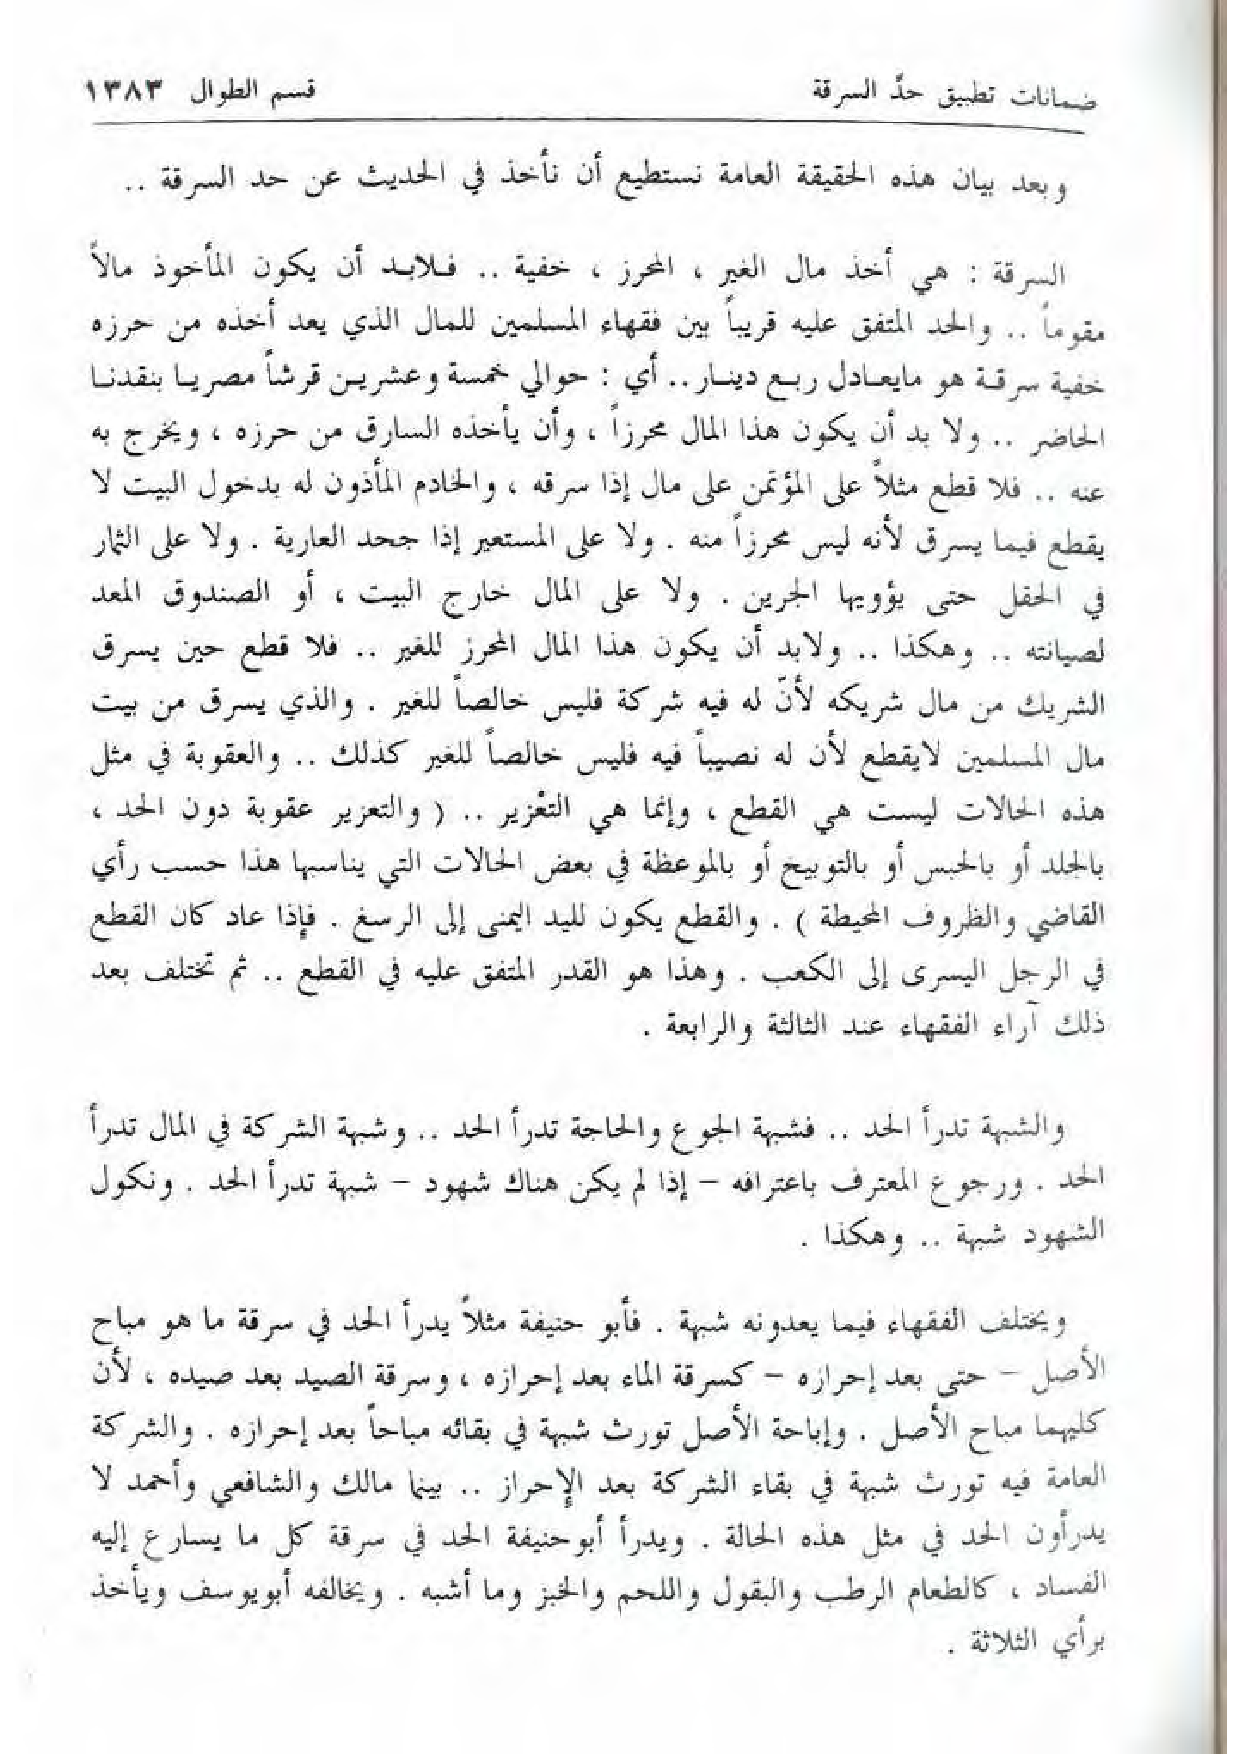 ضمانات تطبيق حدَّ السرقة قسم الطوال ١٣٨٣
وبعد بيان هذه الحقيقة العامة نستطيع أن نأخذ في الحديث عن حد السرقة ..
السرقة : هي أخذ مال الغير ، المحرز ، خفية .. فلابد أن يكون المأخوذ مالاً
مقوماً .. والحد المتفق عليه قريباً بين فقهاء المسلمين للمال الذي يعد أخذه من حرزه
خفية سرقة هو مايعادل ربع دينار .. أي : حوالي خمسة وعشرين قرشاً مصريا بنقدنا
الحاضر .. ولا بد أن يكون هذا المال محرزاً ، وأن يأخذه السارق من حرزه ، ويخرج به
عنه .. فلا قطع مثلاً على المؤتمن على مال إذا سرقه ، والخادم المأذون له بدخول البيت لا
يقطع فيما يسرق لأنه ليس محرزاً منه . ولا على المستعير إذا جحد العارية . ولا على الثمار
في الحقل حتى يؤويها الجرين . ولا على المال خارج البيت ، أو الصندوق المعد
لصيانته .. وهكذا .. ولابد أن يكون هذا المال المحرز للغير .. فلا قطع حين يسرق
الشريك من مال شريكه لأنّ له فيه شركة فليس خالصاً للغير . والذي يسرق من بيت
مال المسلمين لايقطع لأن له نصيباً فيه فليس خالصاً للغير كذلك .. والعقوبة في مثل
هذه الحالات ليست هي القطع ، وإنما هي التعْزير .. ( والتعزير عقوبة دون الحد ،
بالجلد أو بالحبس أو بالتوبيخ أو بالموعظة في بعض الحالات التي يناسبها هذا حسب رأي
القاضي والظروف المحيطة ) . والقطع يكون لليد اليمنى إلى الرسغ . فإذا عاد كان القطع
في الرجل اليسرى إلى الكعب . وهذا هو القدر المتفق عليه في القطع .. ثم تختلف بعد
ذلك آراء الفقهاء عند الثالثة والرابعة .
والشبهة تدرأ الحد .. فشبهة الجوع والحاجة تدرأ الحد .. وشبهة الشركة في المال تدرأ
الحد . ورجوع المعترف باعترافه – إذا لم يكن هناك شهود – شبهة تدرأ الحد . ونكول
الشهود شبهة .. وهكذا .
ويختلف الفقهاء فيما يعدونه شبهة . فأبو حنيفة مثلاً يدرأ الحد في سرقة ما هو مباح
الأصل – حتى بعد إحرازه – كسرقة الماء بعد إحرازه ، وسرقة الصيد بعد صيده ، لأن
كليهما مباح الأصل . وإباحة الأصل تورث شبهة في بقائه مباحاً بعد إحرازه . والشركة
العامة فيه تورث شبهة في بقاء الشركة بعد الإحراز .. بينما مالك والشافعي وأحمد لا
يدرأون الحد في مثل هذه الحالة . ويدرأ أبوحنيفة الحد في سرقة كل ما يسارع إليه
الفساد ، كالطعام الرطب والبقول واللحم والخبز وما أشبه . ويخالفه أبويوسف ويأخذ
برأي الثلاثة .